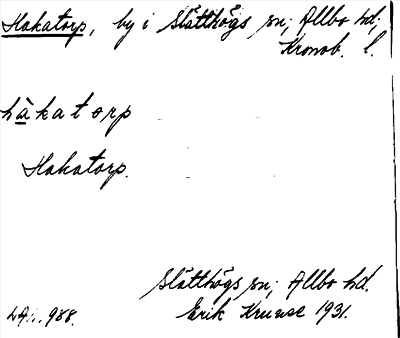 Hakatorp, by i Slätthögs sn; Allbo hd;
Kronob. l.
hàkatorp
Hakatorp.
Slätthögs sn; Allbo hd.
988. Erik Kruuse 1931.